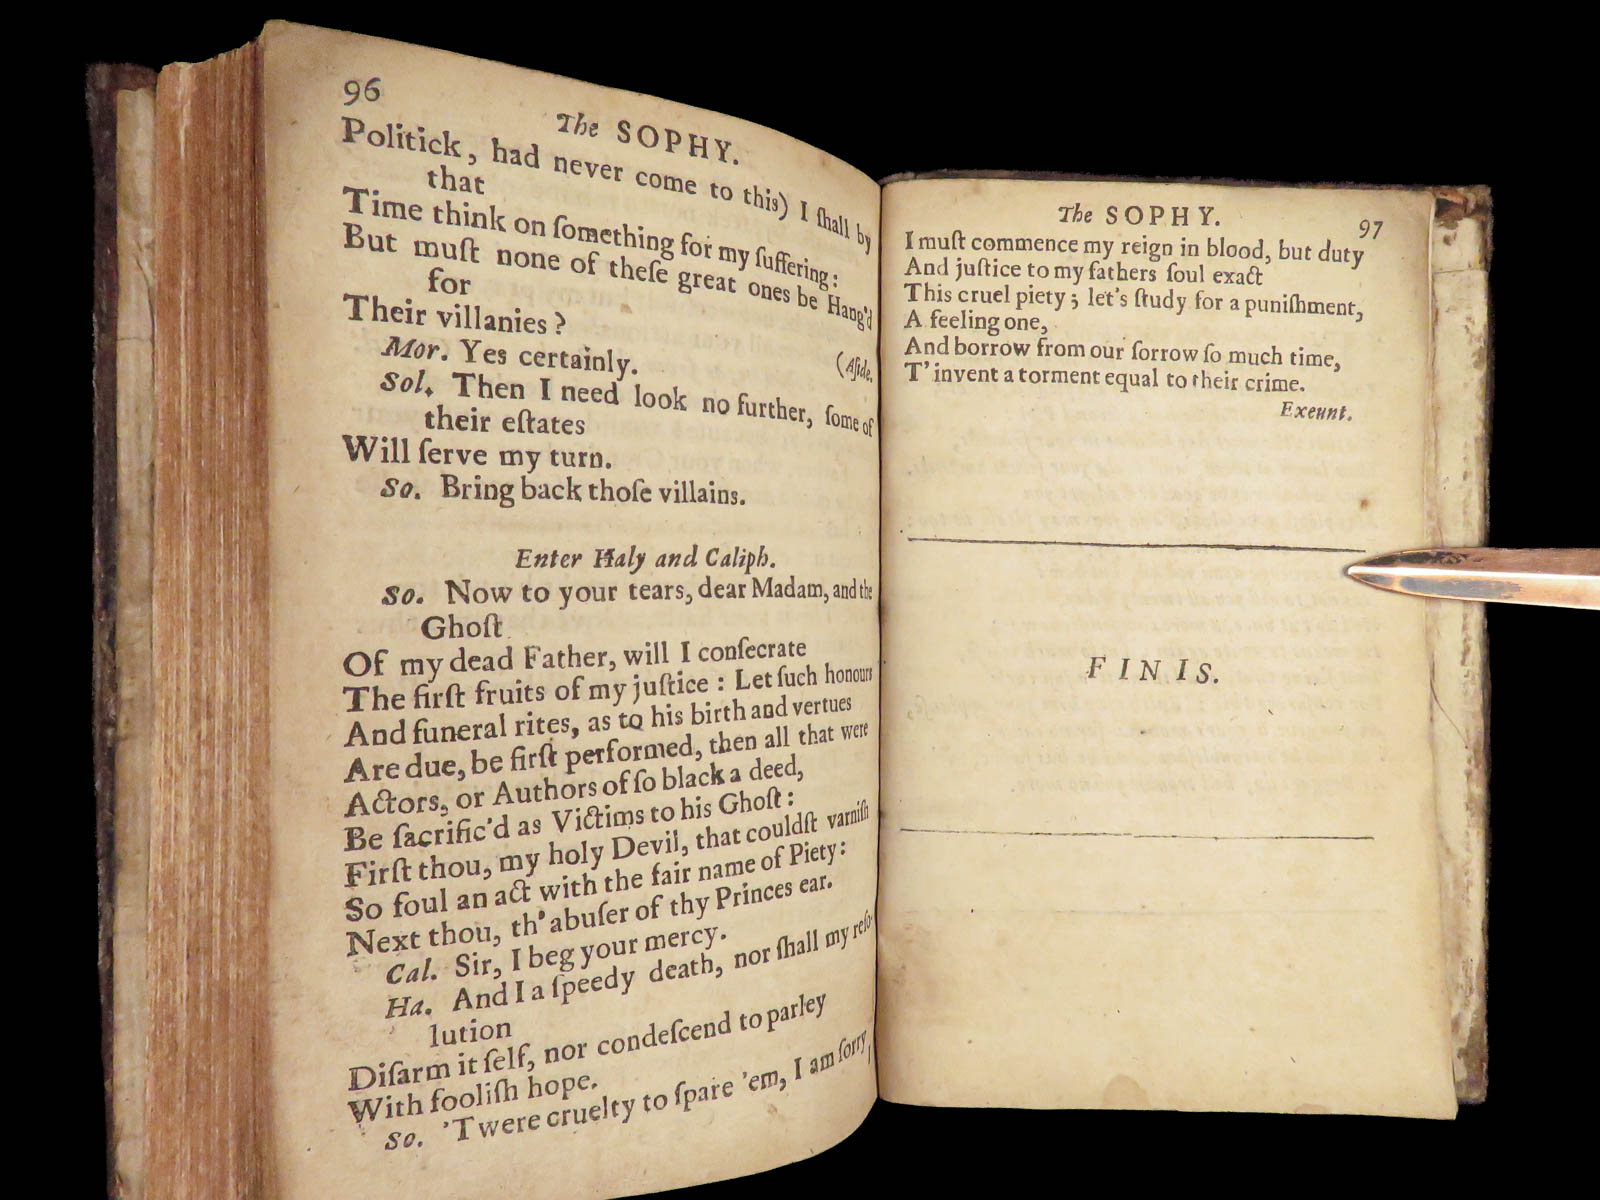 96
The SOPHY.
Politick, had never come to this) I ſhall by
that
Time think on ſomething for my ſuffering:
But muſt none of theſe great ones be Hang'd
for
Their villanies?
Mor. Yes certainly. (Aſide.
Sol. Then I need look no further, ſome of
their eſtates
Will ſerve my turn.
So. Bring back thoſe villains.
Enter Haly and Caliph.
So. Now to your tears, dear Madam, and the
Ghoſt
Of my dead Father, will I conſecrate
The firſt fruits of my juſtice: Let ſuch honours
And funeral rites, as to his birth and vertues
Are due, be firſt performed, then all that were
Actors, or Authors of ſo black a deed,
Be ſacrific'd as Victims to his Ghoſt:
Firſt thou, my holy Devil, that couldſt varniſh
So foul an act with the fair name of Piety:
Next thou, th' abuſer of thy Princes ear.
Cal. Sir, I beg your mercy.
Ha. And I a ſpeedy death, nor ſhall my reſo-
lution
Diſarm it ſelf, nor condeſcend to parley
With fooliſh hope.
So. 'Twere cruelty to ſpare 'em, I am ſorry
I
The SOPHY. 97
I muſt commence my reign in blood, but duty
And juſtice to my fathers ſoul exact
This cruel piety; let's ſtudy for a puniſhment,
A feeling one,
And borrow from our ſorrow ſo much time,
T' invent a torment equal to their crime.
Exeunt.
FINIS.